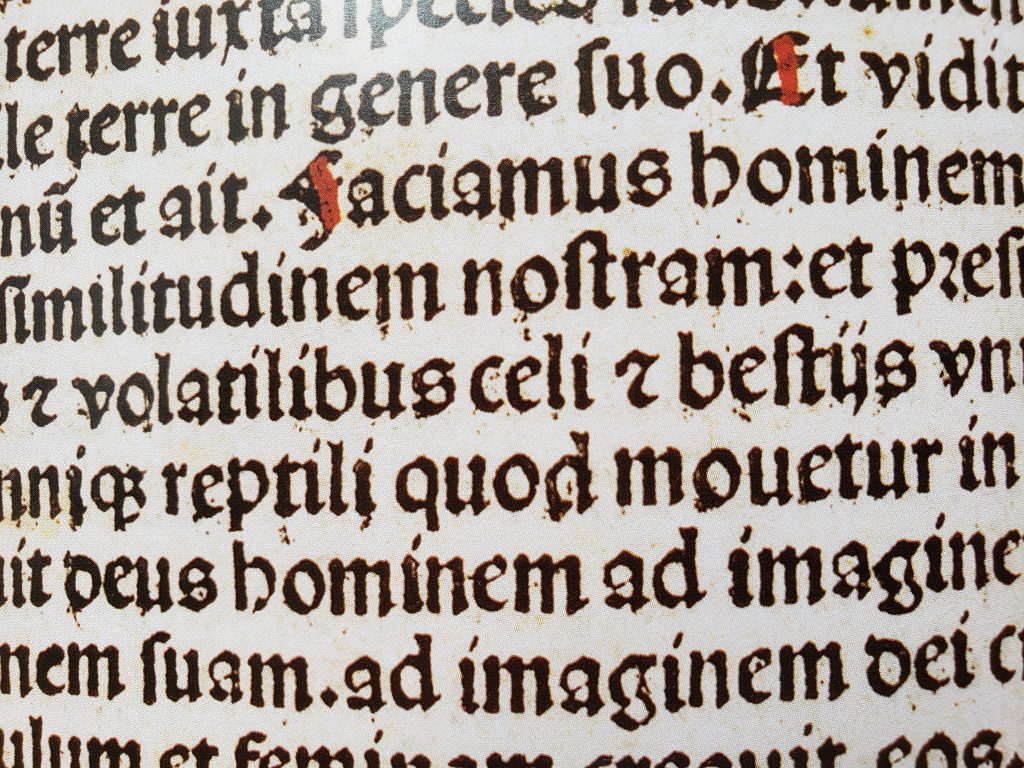 terre iuxta species
terre in genere ſuo. Et vidit
nū et ait. Faciamus hominem
ſimilitudinem noſtram: et preſ
⁊ volatilibus celi ⁊ beſtijs vni
mniqꝫ reptili quod mouetur in
uit deus hominem ad imagine
nem ſuam. ad imaginem dei
et feminam creauit eos.